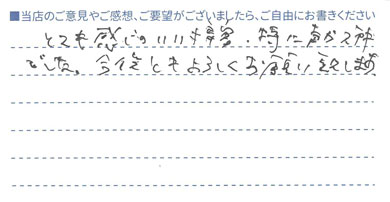 ■当店のご意見やご感想、ご要望がございましたら、ご自由にお書きください
とても感じのいい接客、特に声がステキ
でした。今後ともよろしくお願い致します。